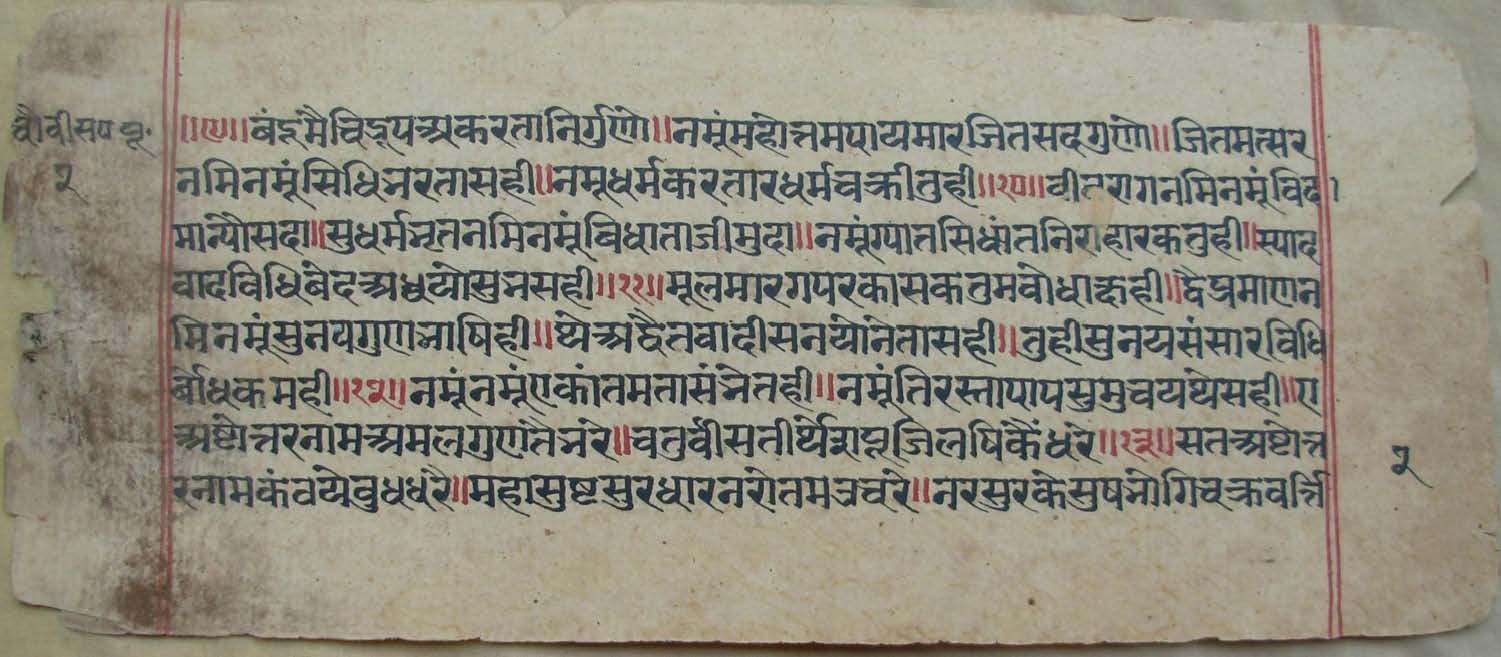 चौवीसप पू.
२
॥१०॥ बंदूं मै चिद्रूप अकरता निर्गुणो ॥ नमूं महोत्तम पाय मार जित सद्गुणो ॥ जित मत्सर
नमि नमूं सिधि भरता सही ॥ नमू धर्म करतार धर्म चक्री तुही ॥११॥ वीतराग नमि नमूं विदा
मान्यौ सदा ॥ सुधर्म भृत नमि नमूं विधाता जी मुदा ॥ नमूं ग्यात सिधांत निराहारक तुही ॥ स्याद
वाद विधि बेद अधुयो सुभ सही ॥१२॥ मूल मारग परकासक तुम वोधा कही ॥ द्वै प्रमाण न
मि नमूं सुनय गुण भाषिही ॥ थे अद्वैतवादी स नयो नेता सही ॥ तुही सुनय संसार विधि
र्बोधक मही ॥१३॥ नमूं नमूं एकांत मता सं भेतही ॥ नमूं तिरस्ता पाप सुमुचय थे सही ॥ ए
अष्टोत्तर नाम अमल गुण तै भरे ॥ चतुर्वीस तीर्थेश पूजि लषि कैं धरे ॥१४॥ सत अष्टोत्त
२
र नाम कंवये वुध धरै ॥ महासुष्ट सुर धार नरोतम उचरे ॥ नर सुर के सुष भोगि चक्रवर्त्ति